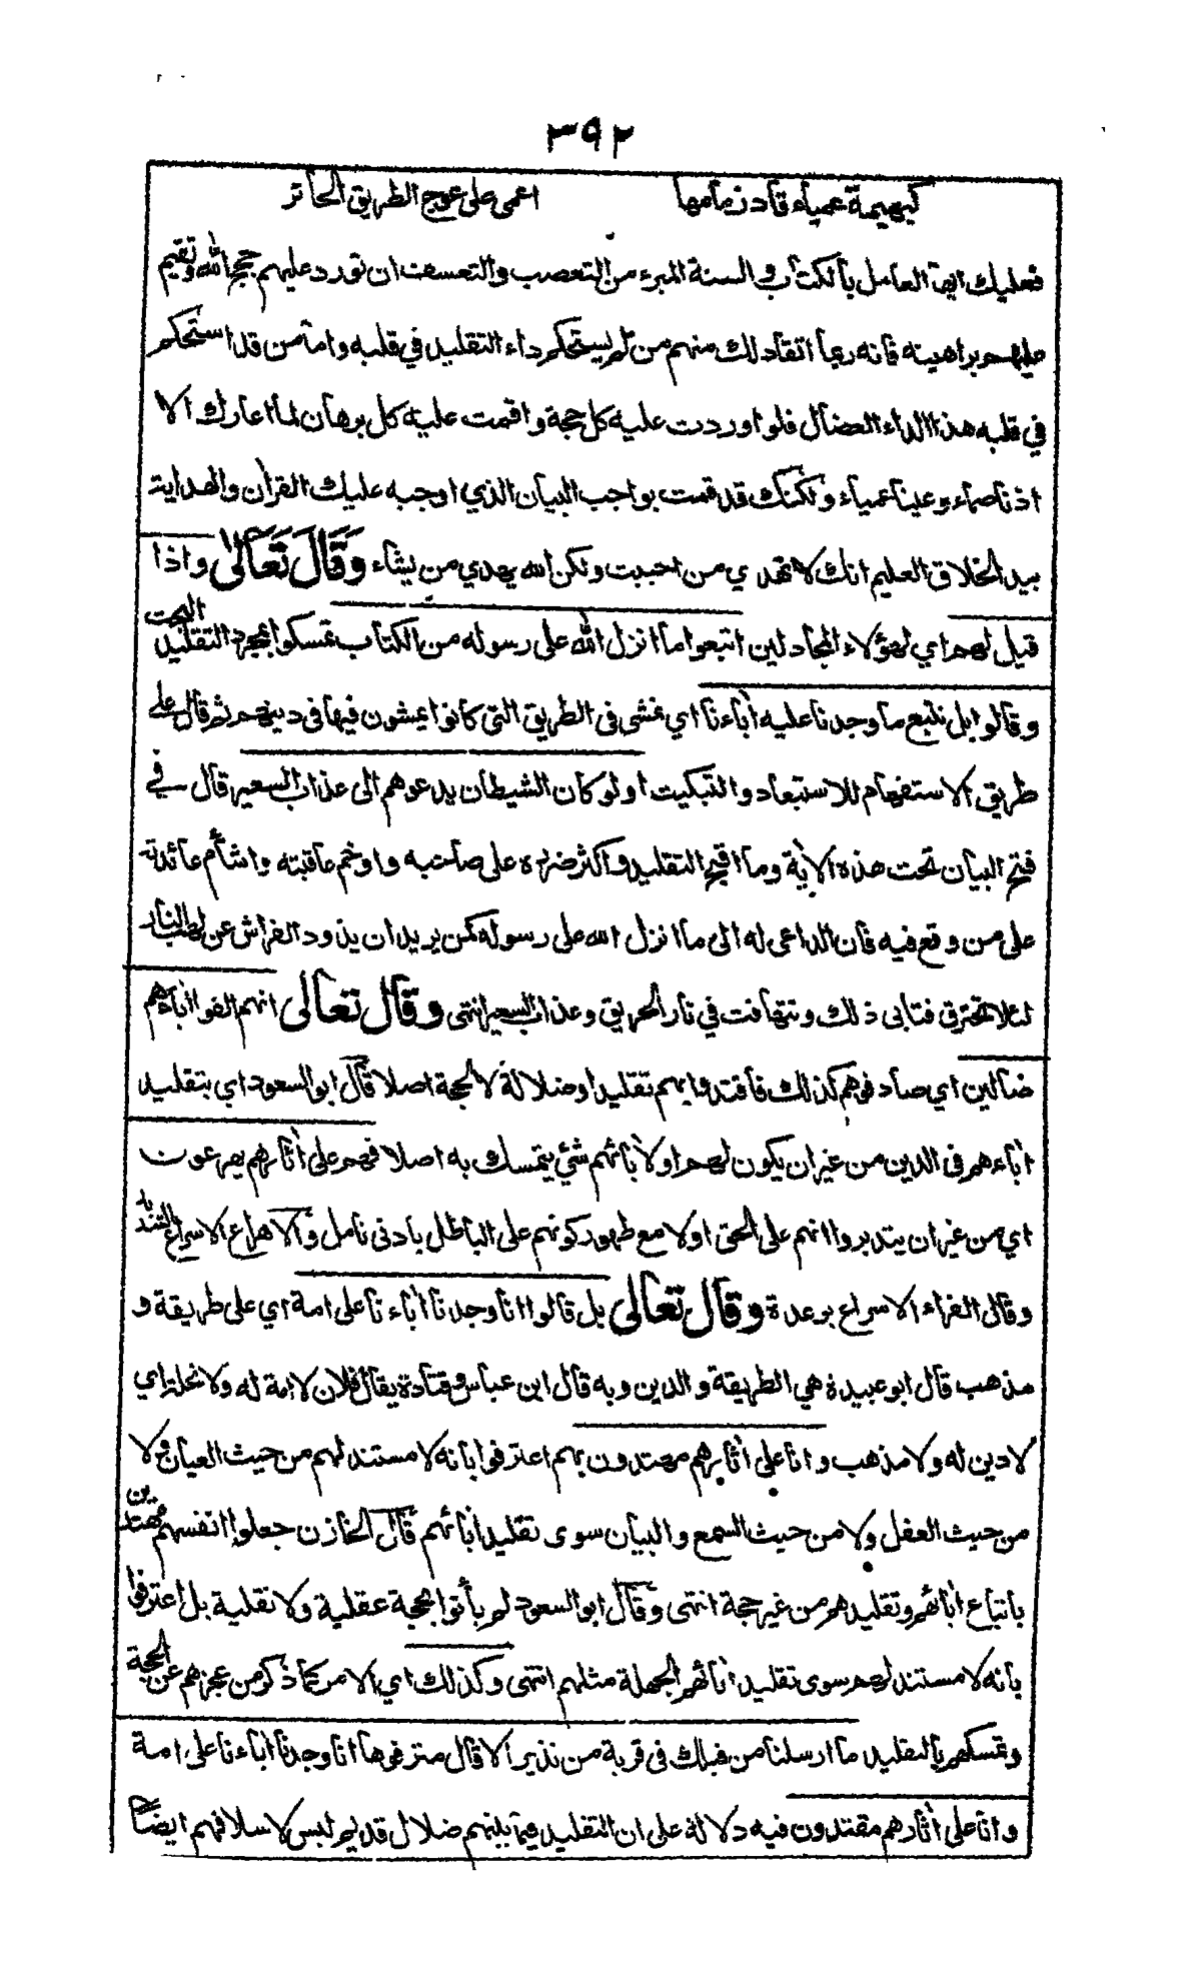 ٣٩٢
كبهيمة عمياء قاد زمامها اعمى على عوج الطريق الحائر
فعليك ايها العامل بالكتاب والسنة المبرء من التعصب والتعسف ان تورد عليهم حجج الله وتقيم
عليهم براهينه فانه ربما انقاد لك منهم من لم يستحكم داء التقليد في قلبه واما من قد استحكم
في قلبه هذا الداء العضال فلو اوردت عليه كل حجة واقمت عليه كل برهان لما اعارك الا
اذنا صماء وعينا عمياء ولكنك قد قمت بواجب البيان الذي اوجبه عليك القران والهداية
بيد الخلاق العليم انك لا تهدي من احببت ولكن الله يهدي من يشاء وَقَالَ تَعَالٰى واذا
قيل لهم اي لهؤلاء المجادلين اتبعوا ما انزل الله على رسوله من الكتاب تمسكوا بمجرد التقليد البحت
وقالوا بل نتبع ما وجدنا عليه اٰباءنا اي نمشى فى الطريق التى كانوا يمشون فيها فى دينهم ثم قال على
طريق الاستفهام للاستبعاد والتبكيت اولو كان الشيطان يدعوهم الى عذاب السعير قال في
فتح البيان تحت هذه الاٰية وما اقبح التقليد واكثر ضرره على صاحبه واوخم عاقبته واشأم عائدته
على من وقع فيه فان الداعى له الى ما انزل الله على رسوله كمن يريد ان يذود الفراش عن لهب النار
لئلا تحترق فتابى ذلك وتتهافت في نار الحريق وعذاب السعير انتهى وقال تعالى انهم الفوا اٰباءهم
ضالين اي صادفوهم كذلك فاقتدوا بهم تقليدا وضلالة لا لحجة اصلا قال ابو السعود اي بتقليد
اٰباءهم فى الدين من غير ان يكون لهم او لاٰبائهم شئي يتمسك به اصلا فهم على اٰثارهم يهرعون
اي من غير ان يتدبروا انهم على الحق او لا مع ظهور كونهم على الباطل بادنى تامل والاهراع الاسراع الشديد
وقال الفراء الاسراع برعدة وقال تعالى بل قالوا انا وجدنا اٰباءنا على امة اي على طريقة و
مذهب قال ابو عبيدة هي الطريقة والدين وبه قال ابن عباس وقتادة يقال فلان لا امة له ولا نحلة اي
لا دين له ولا مذهب وانا على اٰثارهم مهتدون بهم اعترفوا بانه لا مستند لهم من حيث العيان ولا
من حيث العقل ولا من حيث السمع والبيان سوى تقليد اٰبائهم قال الخازن جعلوا انفسهم مهتدين
باتباع اٰبائهم وتقليدهم من غير حجة انتهى وقال ابو السعود لم يأتوا بحجة عقلية ولا نقلية بل اعترفوا
بانه لا مستند لهم سوى تقليد اٰبائهم الجهلة مثلهم انتهى وكذلك اي الامر كما ذكر من عجزهم عن الحجة
وتمسكهم بالتقليد ما ارسلنا من قبلك فى قرية من نذير الا قال مترفوها انا وجدنا اٰباءنا على امة
وانا على اٰثارهم مقتدون فيه دلالة على ان التقليد فيما بينهم ضلال قديم ليس لاسلافهم ايضا